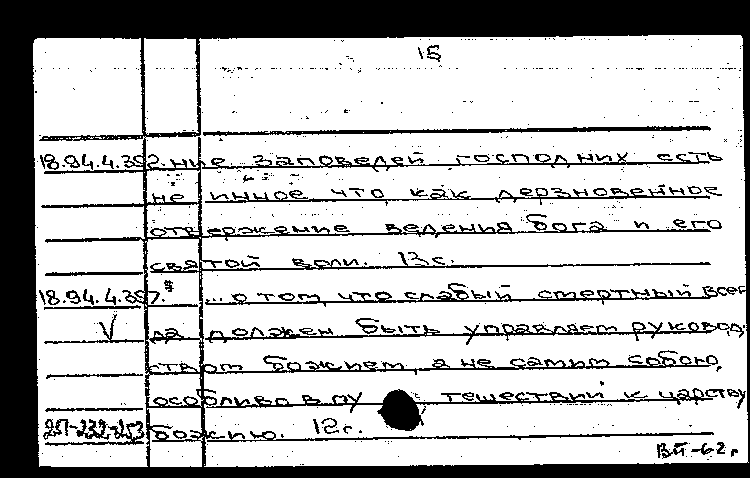 15
18.94.4.352. ние заповедей господних есть
не инное что как дерзновенное
отвержение ведения бога и его
святой воли. 13 с.
18.94.4.357. ... о том, что слабый смертный всег
V да должен быть управляем руковод
ством божием, а не самим собою,
особливо в пу тешествии к царству
божию. 12 г.
ВП-62 г